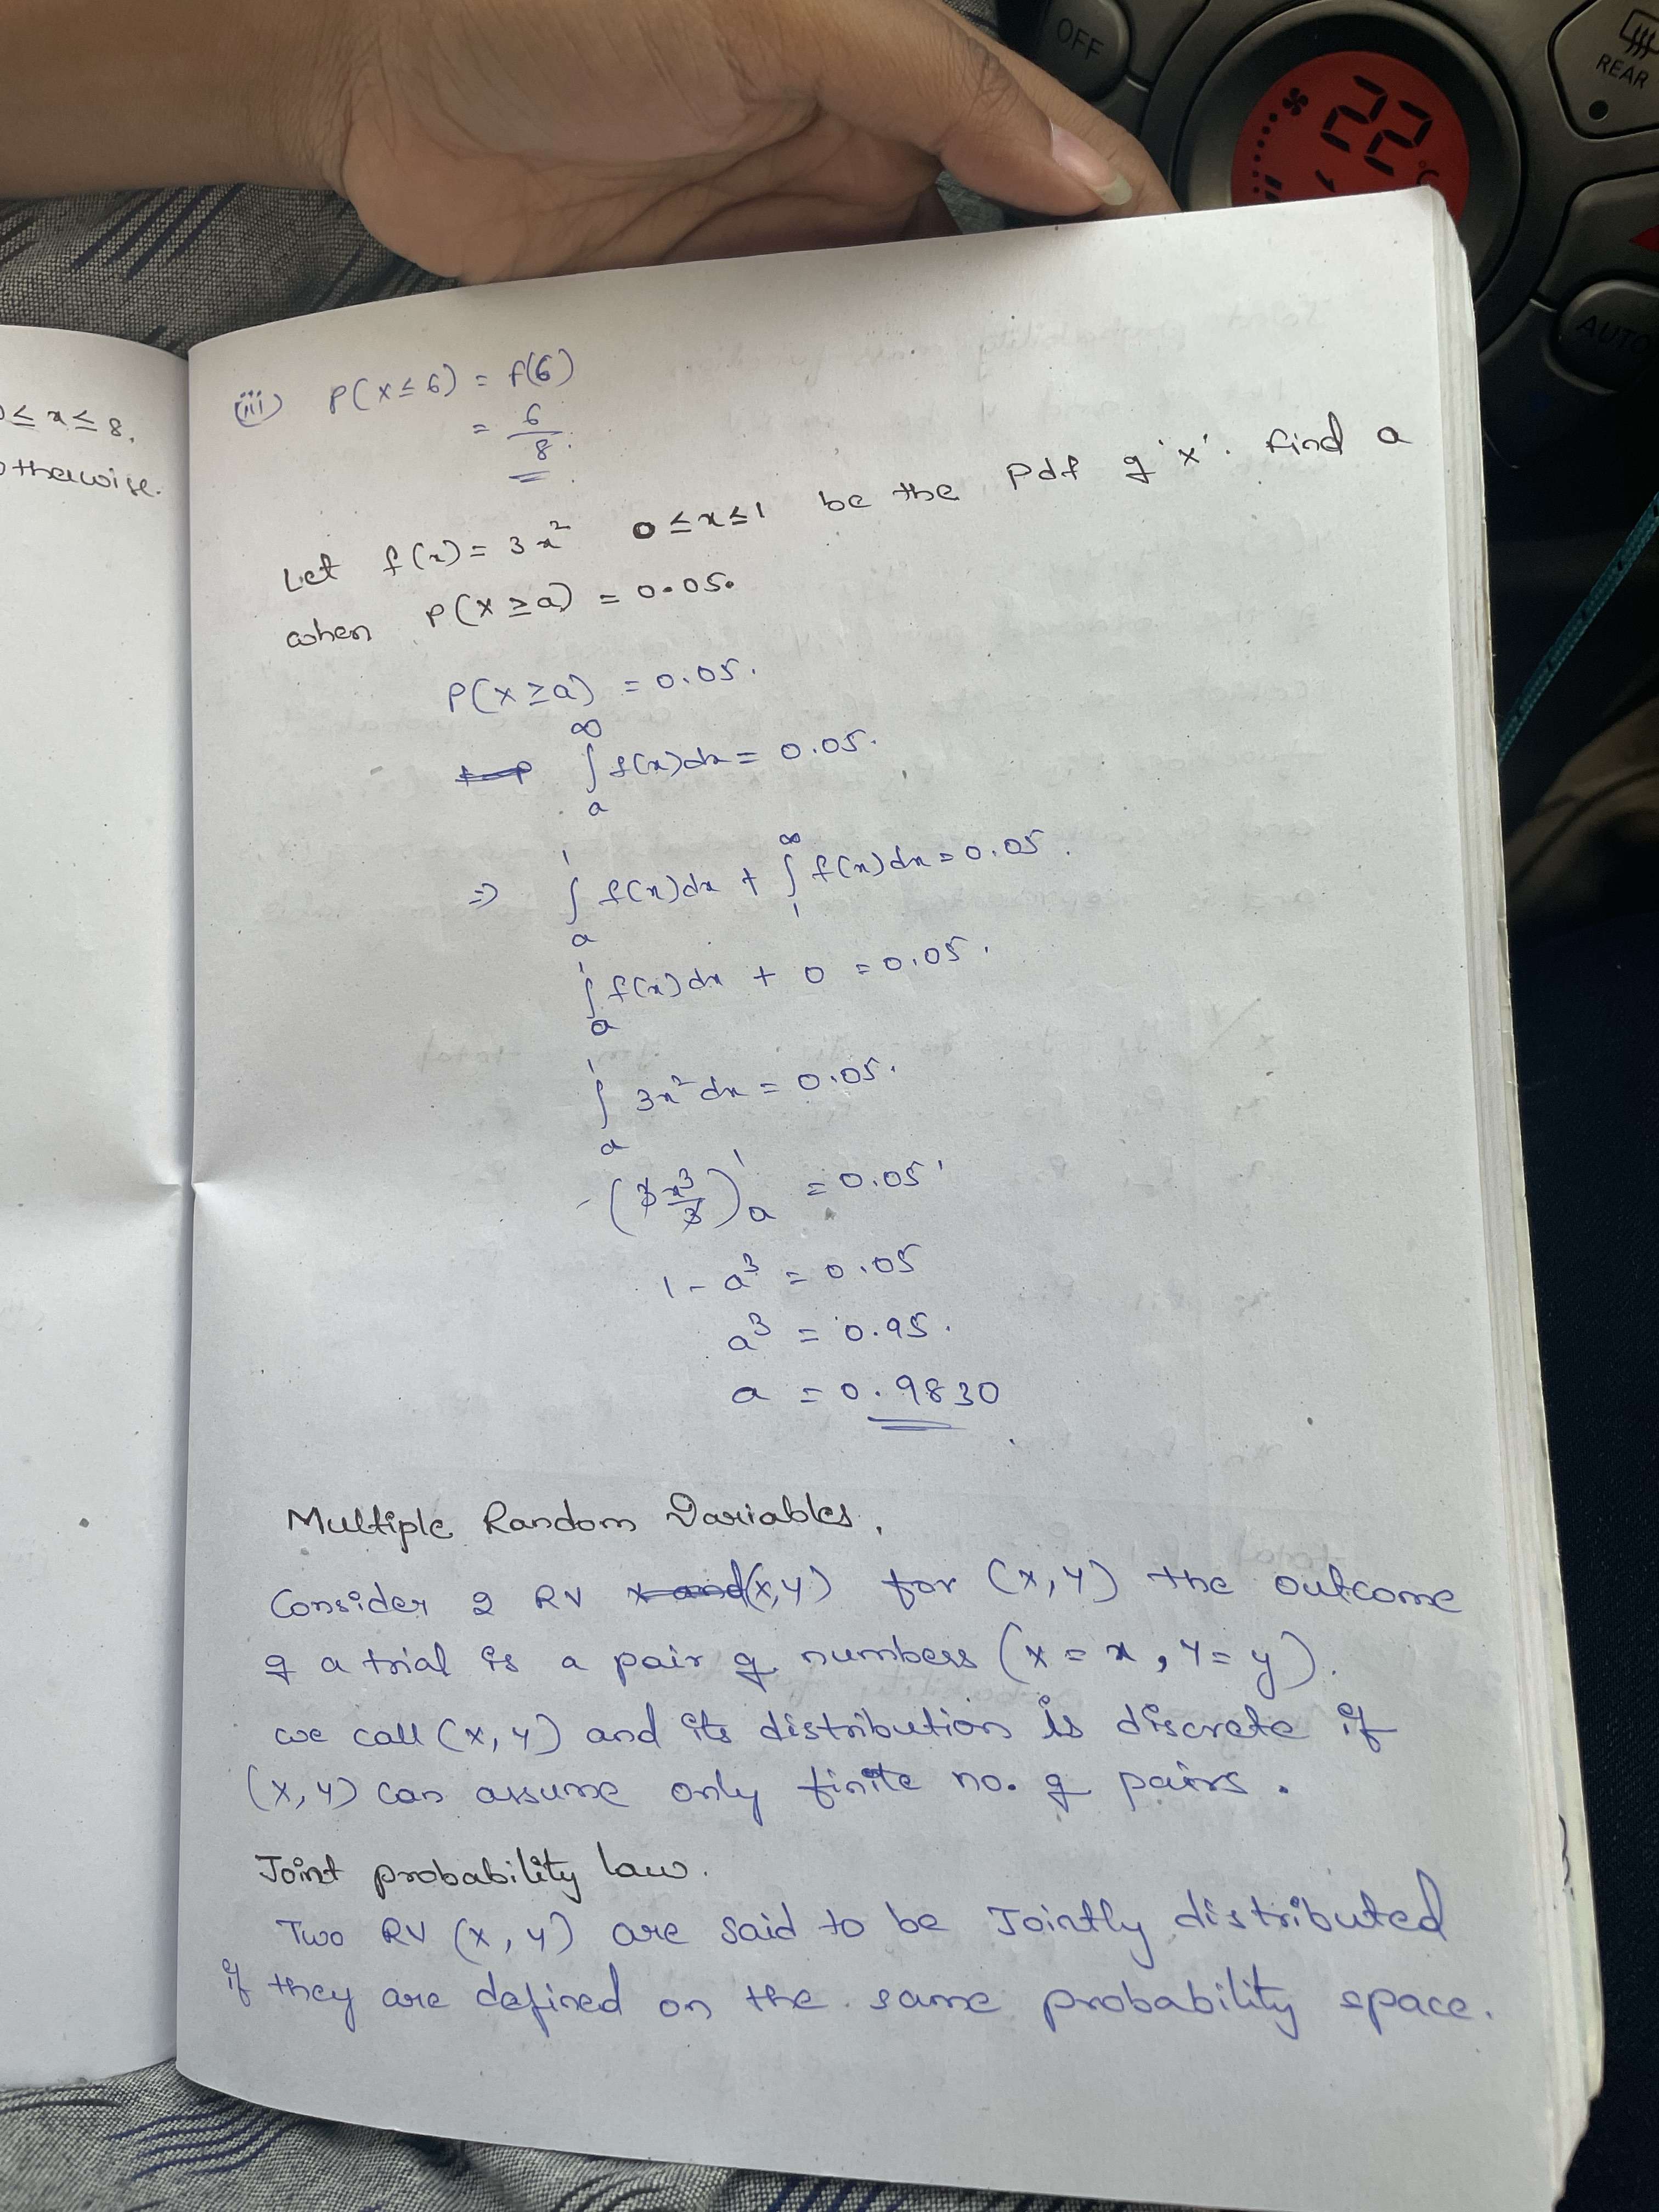 OFF
22
°C
REAR
AUTO
≤ x ≤ 8.
otherwise.
(iii) P(X ≤ 6) = f(6)
= 6/8.
Let f(x) = 3x² 0 ≤ x ≤ 1 be the pdf of 'x'. find a
when P(X ≥ a) = 0.05.
P(X ≥ a) = 0.05.
∫ₐ^∞ f(x)dx = 0.05.
=> ∫ₐ¹ f(x)dx + ∫₁^∞ f(x)dx = 0.05.
∫ₐ¹ f(x)dx + 0 = 0.05.
∫ₐ¹ 3x² dx = 0.05.
(3 x³/3)ₐ¹ = 0.05
1 - a³ = 0.05
a³ = 0.95.
a = 0.9830
Multiple Random Variables.
Consider 2 RV x and (x, y) for (x, y) the outcome
of a trial is a pair of numbers (X = x, Y = y).
we call (x, y) and its distribution is discrete if
(x, y) can assume only finite no. of pairs.
Joint probability law.
Two RV (x, y) are said to be Jointly distributed
if they are defined on the same probability space.